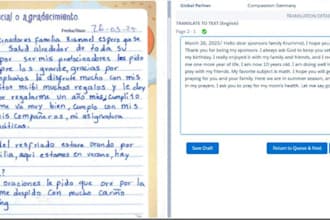 cial o agradecimiento.
Fecha/Date: 26-03-25
cinadores familia Krummel espero que se
Salud alrededor de toda su
por ser mis patrocinadores le pido
pre los grande, gracias por
mpleaños la disfrute mucho con mis
itos recibí muchos regalos y le doy
or regalarme un año mas, cumpli 10
me va muy bien, cumplo con mis
mis compañeras, mi asignatura
áticas.
del resfriado estare orando por
ilia, aquí estamos en verano, hay
?
oraciones le pido que ore por la
me despido con mucho cariño
ng
Global Partner
Compassion Germany
TRANSLATION DETAI
TRANSLATE TO TEXT (English)
Page 2 - 3
March 26, 2025/ Hello dear sponsors family Krummel, I hope you
Thank you for being my sponsors, I always ask God to keep you
birthday, I really enjoyed it with my family and friends, and I
me one more year of life. I am now 10 years old. I am doing well
play with my friends. My favorite subject is math. I hope you will get
praying for you and your family. Here we are in summer season, and
in my prayers, I ask you to pray for my mom's health. Let me say go
Save Draft
Return to Queue